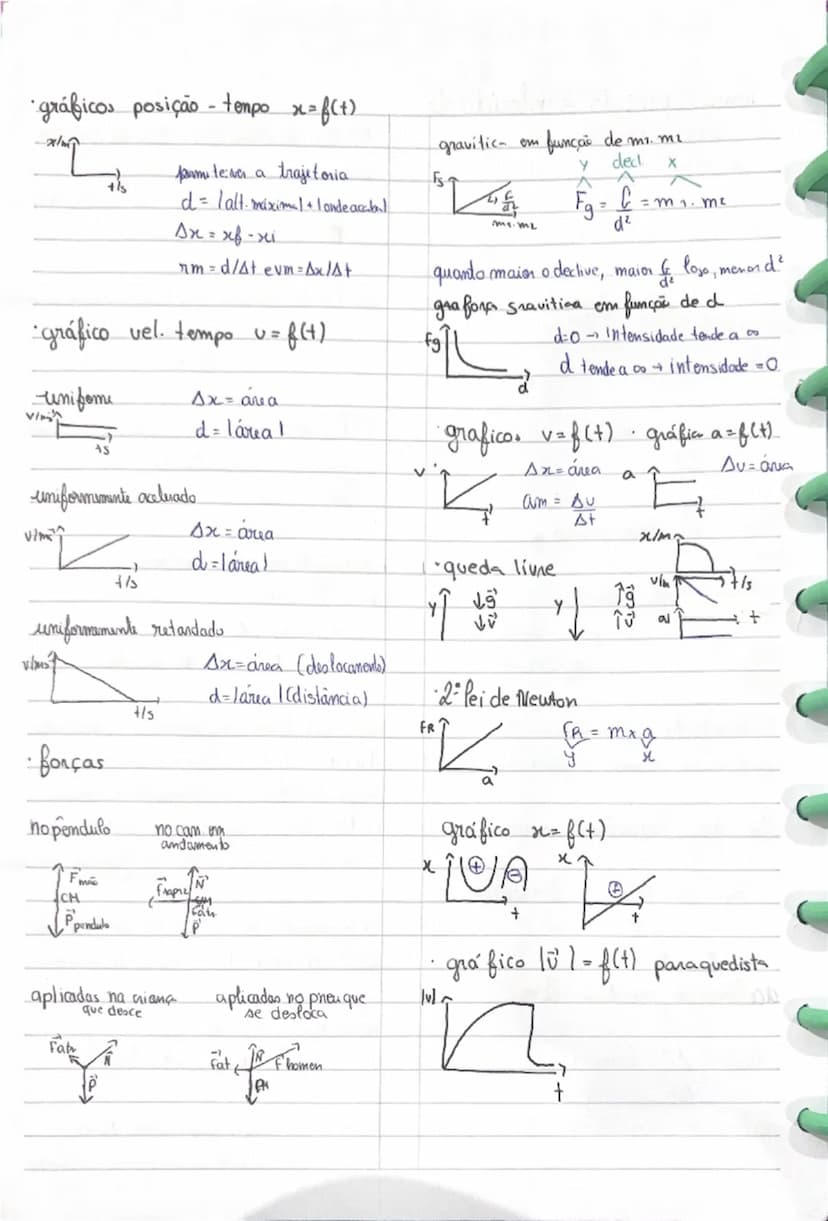 ·gráficos posição - tempo x=f(t)
x/m
t/s
a trajetoria
d = |alt. máxima| + |onde acaba|
Δx = xf - xi
rm = d/Δt e vm = Δx/Δt
·gráfico vel. tempo v = f(t)
uniforme
v/ms⁻¹
t/s
Δx = área
d = |área|
uniformemente acelerado
v/ms⁻¹
t/s
Δx = área
d = |área|
uniformemente retardado
v/ms⁻¹
t/s
Δx = área (deslocamento)
d = |área| (distância)
· forças
no pêndulo
F⃗ mão
CM
P⃗ pendulo
no carr. em
andamento
N⃗
F⃗at
P⃗
aplicadas na criança
que desce
F⃗atr
N⃗
P⃗
aplicadas no pneu que
se desloca
F⃗at
N⃗
F⃗ homem
gravitic- em função de m1. m2
y decl. x
Fg
↳ G/d²
m1.m2
Fg = G/d² = m1. m2
quanto maior o declive, maior G/d² logo, menor d²
gra força gravitica em função de d
Fg
d
d=0 → intensidade tende a ∞
d tende a ∞ → intensidade = 0
graficos v=f(t) · gráfico a=f(t)
v
t
Δx = área
am = Δv/Δt
a
t
Δv = área
·queda livre
y ↓g⃗
↓v⃗
y ↑g⃗
↑v⃗
x/m
v/m
t/s
a/
t
·2ª lei de Newton
FR
a
FR = m x a
y x
gráfico x=f(t)
x + -
t
x +
t
· gráfico |v⃗| = f(t) paraquedista
|v|
t